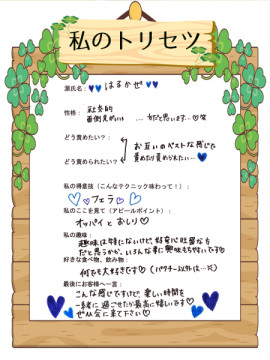 私のトリセツ
源氏名：💙💙はるかぜ💙💙
性格：社交的
面倒見がいい ....だと思います...♡笑
どう責めたい？：
お互いのベストな感じで
責めたり責められたい...💙
どう責められたい？：
私の得意技（こんなテクニック味わって！）：
♡♡フェラ♡♡
私のここを見て（アピールポイント）：
オッパイとおしり♡
私の趣味：
趣味は特にないけど、好奇心旺盛な方
だと思うから、いろんな事に興味をもちたいです
好きな食べ物、飲み物：
何でも大好きです♡（パクチー以外は...笑）
最後にお客様へ一言：
こんな感じですけど、楽しい時間を
一緒に過ごせたら最高に嬉しいです♡
ぜひ会いに来て下さい♡